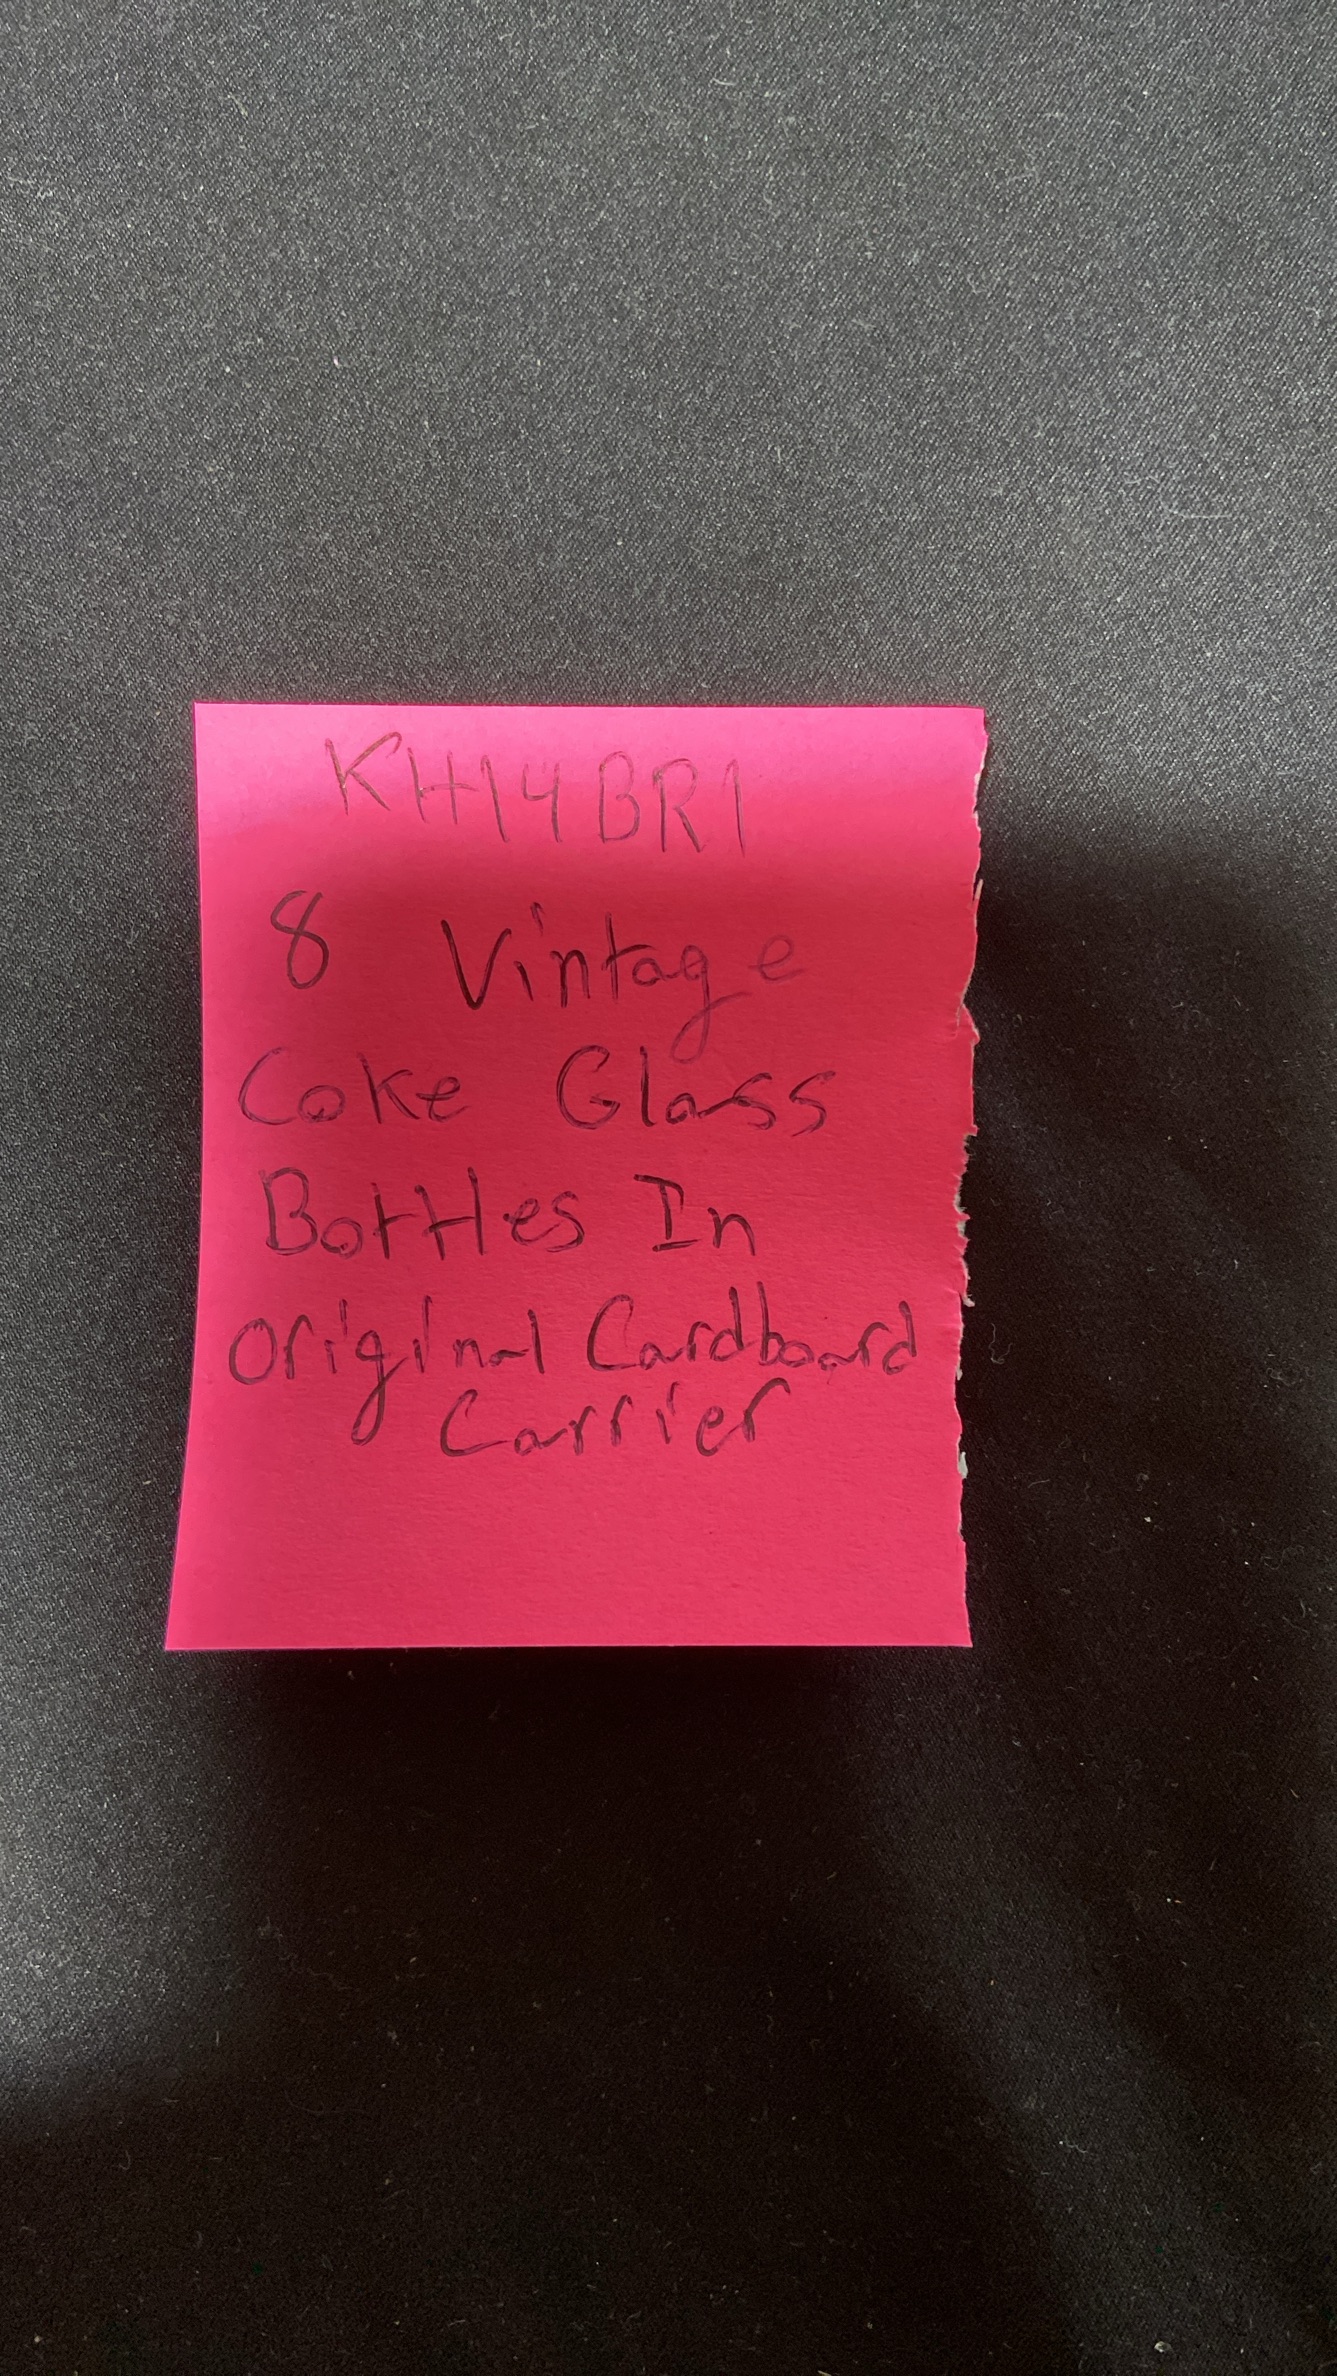 KH14BR1
8 Vintage
Coke Glass
Bottles In
Original Cardboard
Carrier